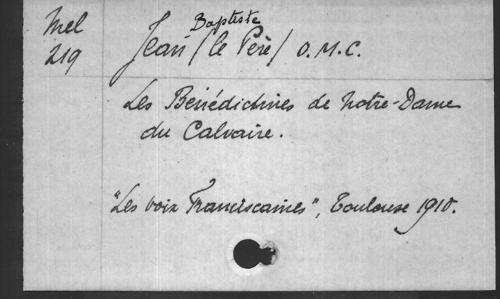 Mel
219
Jean Baptiste / le Père / O.M.C.
Les Bénédictines de Notre-Dame
du Calvaire.
"Les voix Franciscaines", Toulouse 1910.